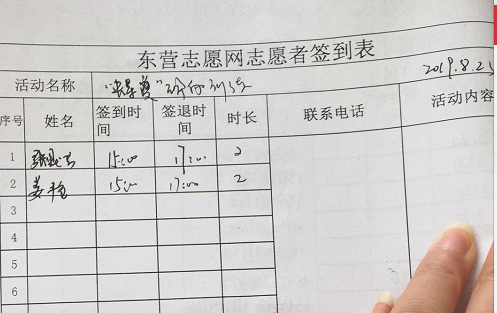 东营志愿网志愿者签到表
2019.8.25
活动名称
序号 姓名 签到时间 签退时间 时长 联系电话 活动内容
1 15:00 17:00 2
2 姜艳 15:00 17:00 2
3
4
5
6